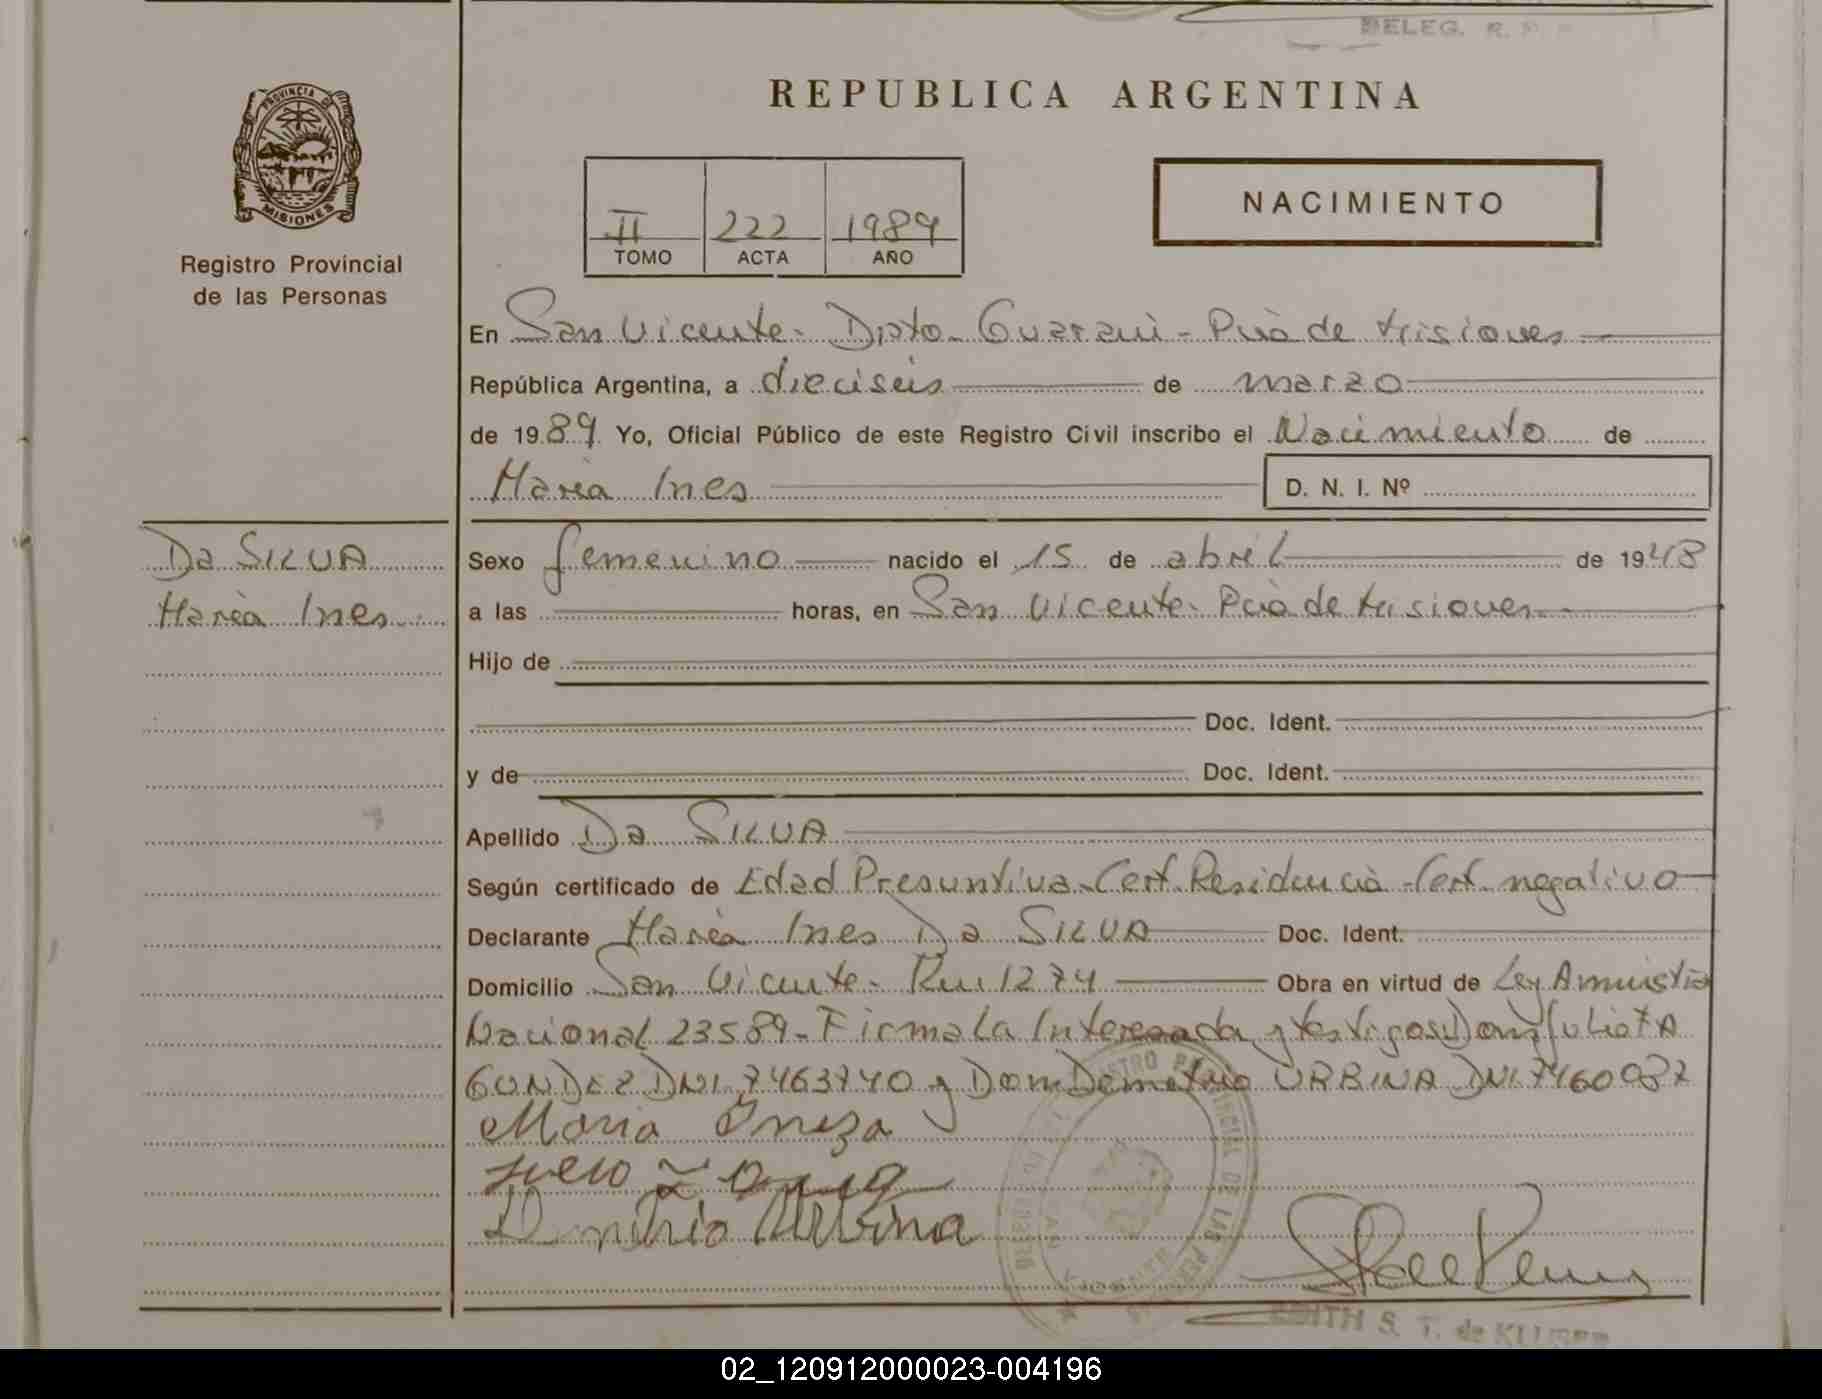 DELEG. R.
REPUBLICA ARGENTINA
PROVINCIA DE
MISIONES
NACIMIENTO
II 222 1989
TOMO ACTA AÑO
Registro Provincial
de las Personas
En San Vicente - Dpto. Guarani - Pcia de Misiones
República Argentina, a dieciseis de marzo
de 1989 Yo, Oficial Público de este Registro Civil inscribo el Nacimiento de
Maria Ines D. N. I. Nº
Da SILVA
Maria Ines
Sexo femenino nacido el 15 de abril de 1948
a las horas, en San Vicente - Pcia de Misiones
Hijo de
Doc. Ident.
y de Doc. Ident.
Apellido Da SILVA
Según certificado de Edad Presuntiva - Cert. Residencia - Cert. negativo
Declarante Maria Ines Da SILVA Doc. Ident.
Domicilio San Vicente - Obra en virtud de Ley Amnistia
Nacional 23589 - Firma La Interesada y testigos: Don
DNI. 7463740 y Don Demetrio URBINA DNI.
Maria Ineza
Urbina
REGISTRO PROVINCIAL DE LAS PERSONAS
EDITH S. T. de
02_120912000023-004196